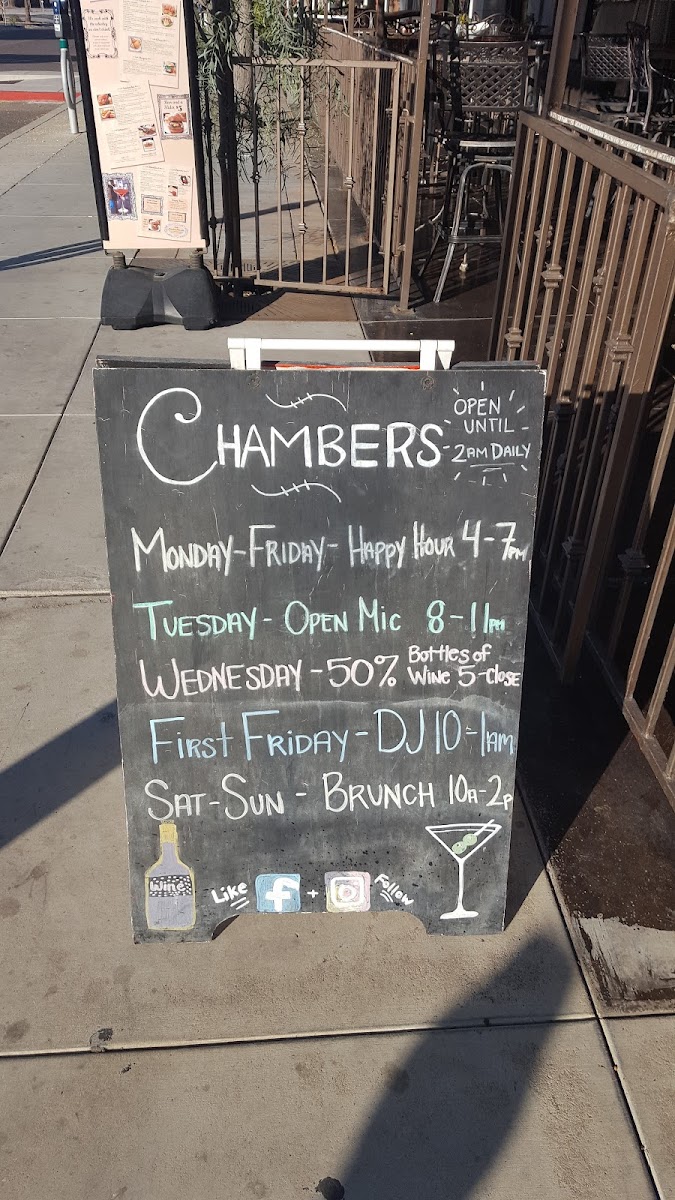 CHAMBERS
OPEN
UNTIL
2AM DAILY
MONDAY-FRIDAY- HAPPY HOUR 4-7PM
TUESDAY - OPEN MIC 8-11PM
WEDNESDAY - 50% Bottles of
WINE 5-CLOSE
FIRST FRIDAY - DJ 10-1AM
SAT-SUN - BRUNCH 10A-2P
Wine
Like f + Follow